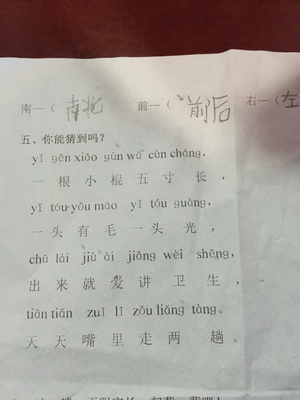 南—（南北 前—（前后 右—（左
五、你能猜到吗？
yī gēn xiǎo gùn wǔ cùn cháng,
一根小棍五寸长，
yī tóu yǒu máo yī tóu guāng,
一头有毛一头光，
chū lái jiù ài jiǎng wèi shēng,
出来就爱讲卫生，
tiān tiān zuǐ lǐ zǒu liǎng tàng.
天天嘴里走两趟。